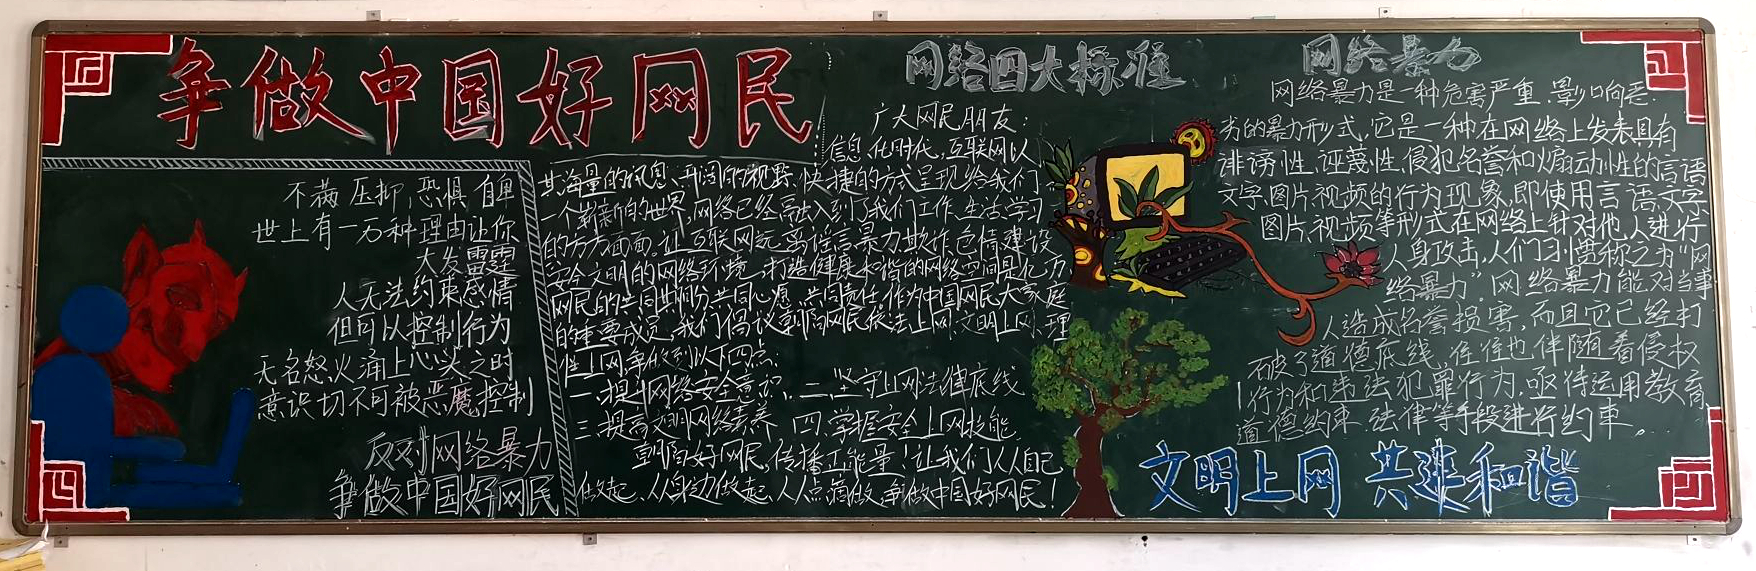 争做中国好网民
不满 压抑,恐惧 自卑
世上有一万种理由让你
大发雷霆
人无法约束感情
但可以控制行为
无名怒火涌上心头之时
意识切不可被恶魔控制
反对网络暴力
争做中国好网民
网络四大标准
广大网民朋友:
信息化时代,互联网以
其海量的讯息、开阔的视野、快捷的方式呈现给我们
一个崭新的世界,网络已经融入到了我们工作、生活学习
的方方面面。让互联网远离谣言暴力欺诈、色情,建设
安全文明的网络环境,打造健康和谐的网络空间是亿万
网民的共同期盼,共同心愿,共同责任,作为中国网民大家庭
的重要成员,我们倡议到网民依法上网、文明上网、理
性上网,争做到以下四点:
一、提进网络安全意识, 二、坚守上网法律底线
三、提高文明网络素养 四、掌握安全上网技能,
好网民,传播正能量!让我们从人自己
做起、从身边做起、人点滴做,争做中国好网民!
网络暴力
网络暴力是一种危害严重、影响恶
劣的暴力形式,它是一种在网络上发表具有
诽谤性、诬蔑性、侵犯名誉和煽动性的言语
文字、图片、视频的行为现象,即使用言语、文字
图片、视频等形式在网络上针对他人进行
人身攻击,人们习惯称之为“网
络暴力”。网络暴力能对当事
人造成名誉损害,而且它已经打
破了道德底线,往往也伴随着侵权
行为和违法犯罪行为,亟待运用教育、
道德约束、法律等手段进行约束。
文明上网 共建和谐